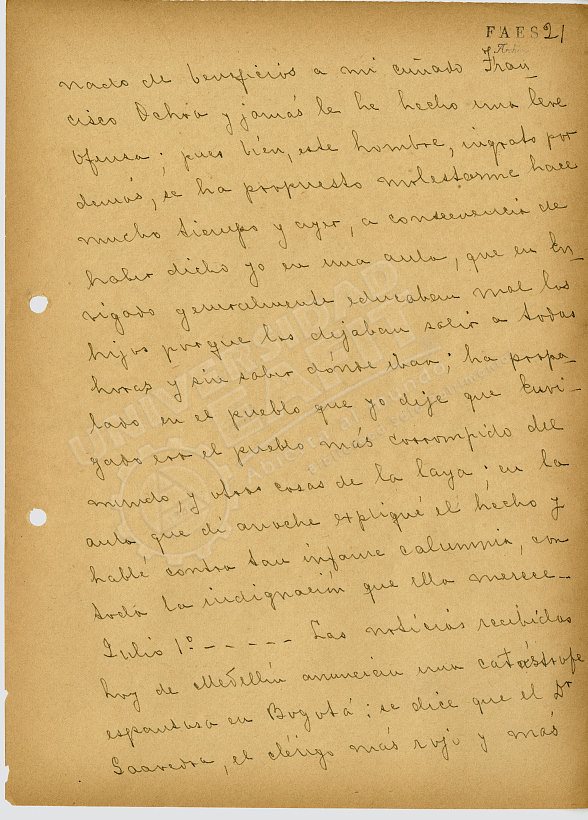 FAES 21
nado de beneficios a mi cuñado Fran-
cisco Ochoa y jamás le he hecho una leve
ofensa; pues bién, este hombre, ingrato por
demás, se ha propuesto molestarme hace
mucho tiempo y ayer, a consecuencia de
haber dicho yo en una aula, que en En-
vigado generalmente educaban mal los
hijos porque los dejaban salir a todas
horas y sin saber dónde iban; ha propa-
lado en el pueblo que yo dije que Envi-
gado era el pueblo más corrompido del
mundo, y otras cosas de la laya; en la
aula que di anoche expliqué el hecho y
hablé contra tan infame calumnia, con
toda la indignación que ella merece--
Julio 1º ----- Las noticias recibidas
hoy de Medellín anuncian una catástrofe
espantosa en Bogotá: se dice que el Dr
Saavedra, el clérigo más rojo y más
UNIVERSIDAD
EAFIT
Abierta al mundo